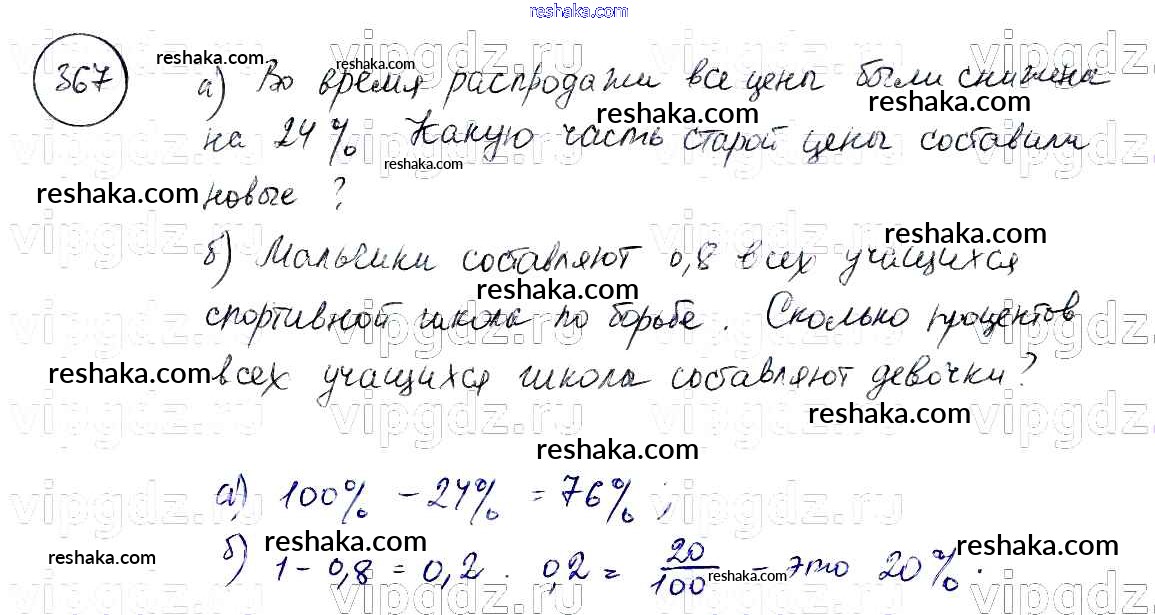 reshaka.com
367
а) Во время распродажи все цены были снижена
на 24% Какую часть старой цены составили
новые ?
б) Мальчики составляют 0,8 всех учащихся
спортивной школа по борьбе. Сколько процентов
всех учащихся школа составляют девочки?
а) 100% - 24% = 76% ;
б) 1 - 0,8 = 0,2. 0,2 = 20/100 - это 20%.
reshaka.com
reshaka.com
reshaka.com
reshaka.com
reshaka.com
reshaka.com
reshaka.com
reshaka.com
reshaka.com
reshaka.com
reshaka.com
reshaka.com
reshaka.com
reshaka.com
vipgdz.ru